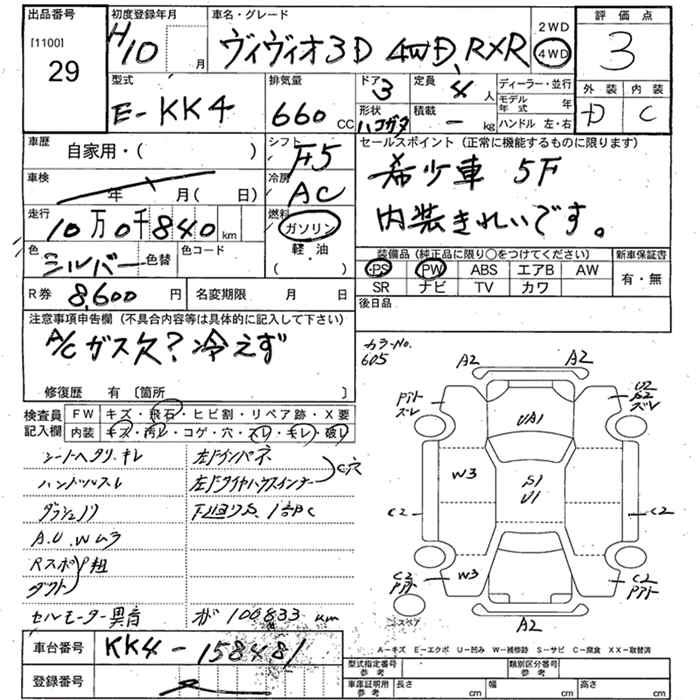 出品番号
[1100]
29
初度登録年月
H10 月
車名・グレード
ヴィヴィオ3D 4WD RXR
2WD
4WD
評価点
3
外装 内装
D C
型式
E-KK4
排気量
660 CC
ドア
3
定員
4 人
形状
ハコガタ
積載
- kg
ディーラー・並行
モデル年式 年
ハンドル 左・右
車歴
自家用・( )
シフト
F5
セールスポイント (正常に機能するものに限ります)
希少車 5F
内装きれいです。
車検
年 月(日)
冷房
AC
走行
10万0千840 km
燃料
ガソリン
軽・油
( )
色
シルバー 色替
色コード
装備品 (純正品に限り○をつけてください)
PS PW ABS エアB AW
SR ナビ TV カワ
新車保証書
有・無
R券 8,600 円
名変期限 月 日
後日品
注意事項申告欄 (不具合内容等は具体的に記入して下さい)
A/C ガス欠? 冷えず
修復歴 有 [箇所 ]
カラーNo.
605
検査員記入欄
FW キズ・飛石・ヒビ割・リペア跡・X要
内装 キズ・汚レ・コゲ・穴・スレ・モレ・破レ
シートヘタリ、キレ
ハンドルスレ
A.U.Wムラ
Rスポ
ダクト
セルモーター異音
左Fインパネ
左Fタイヤハウスインナー
C穴
が 100833 km
A2
A2
UA1
W3
S1
U1
C2
C2
W3
C2
C2
A2
スペア
A-キズ E-エクボ U-凹み W-補修跡 S-サビ C-腐食 XX-取替済
車台番号
KK4-158481
登録番号
型式指定番号 参考
類別区分番号 参考
車庫証明用 参考
長さ cm 幅 cm 高さ cm